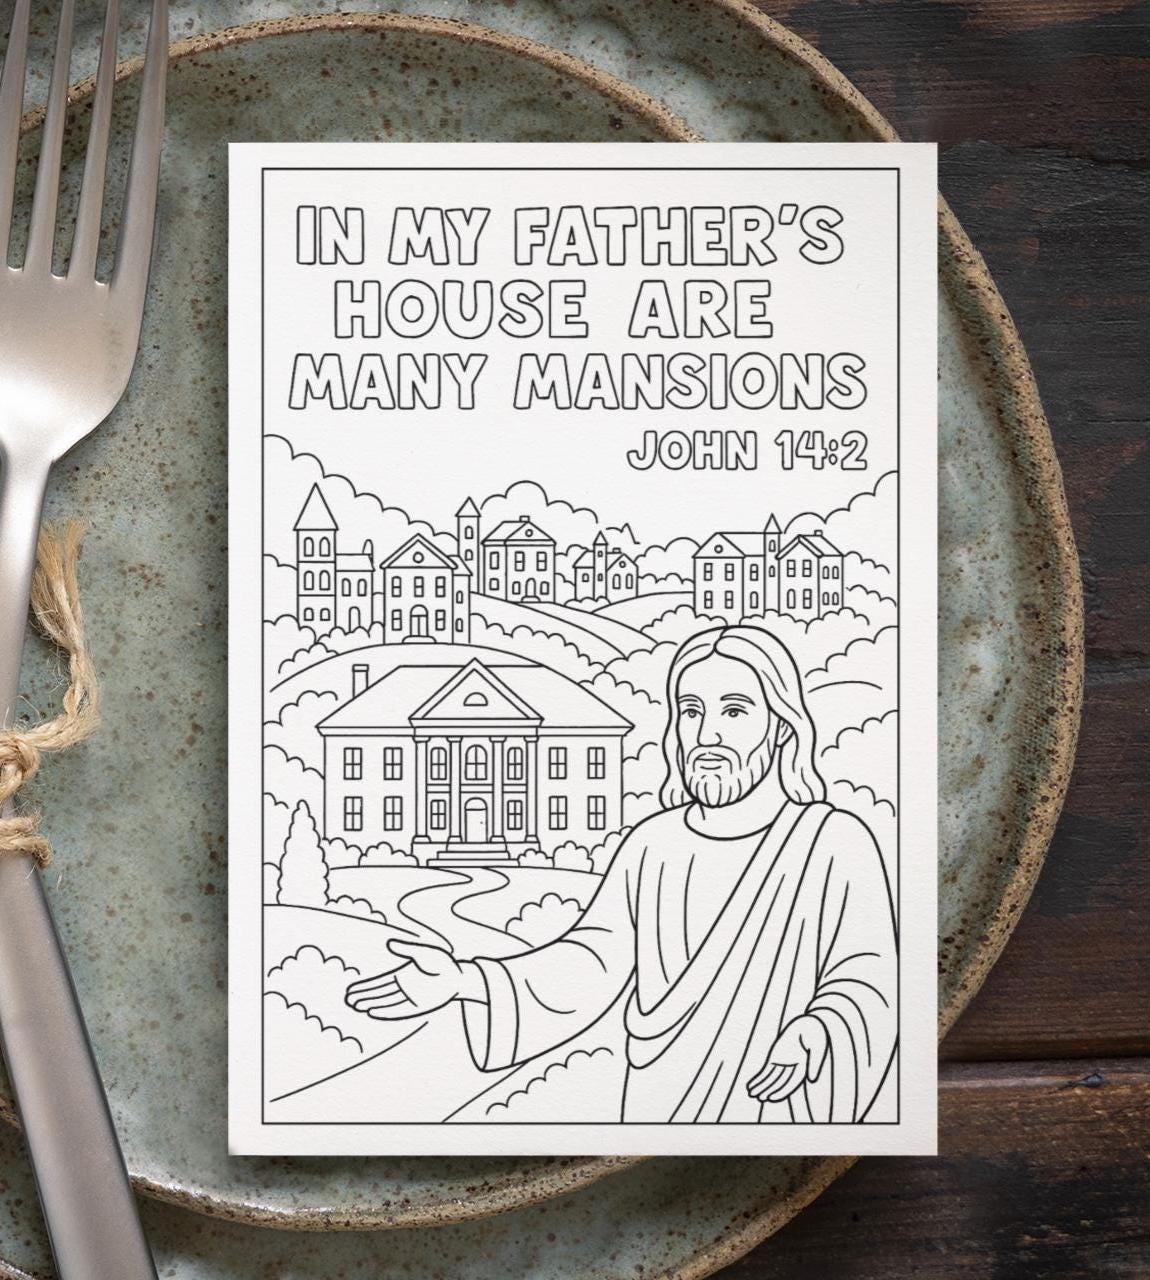 IN MY FATHER'S
HOUSE ARE
MANY MANSIONS
JOHN 14:2